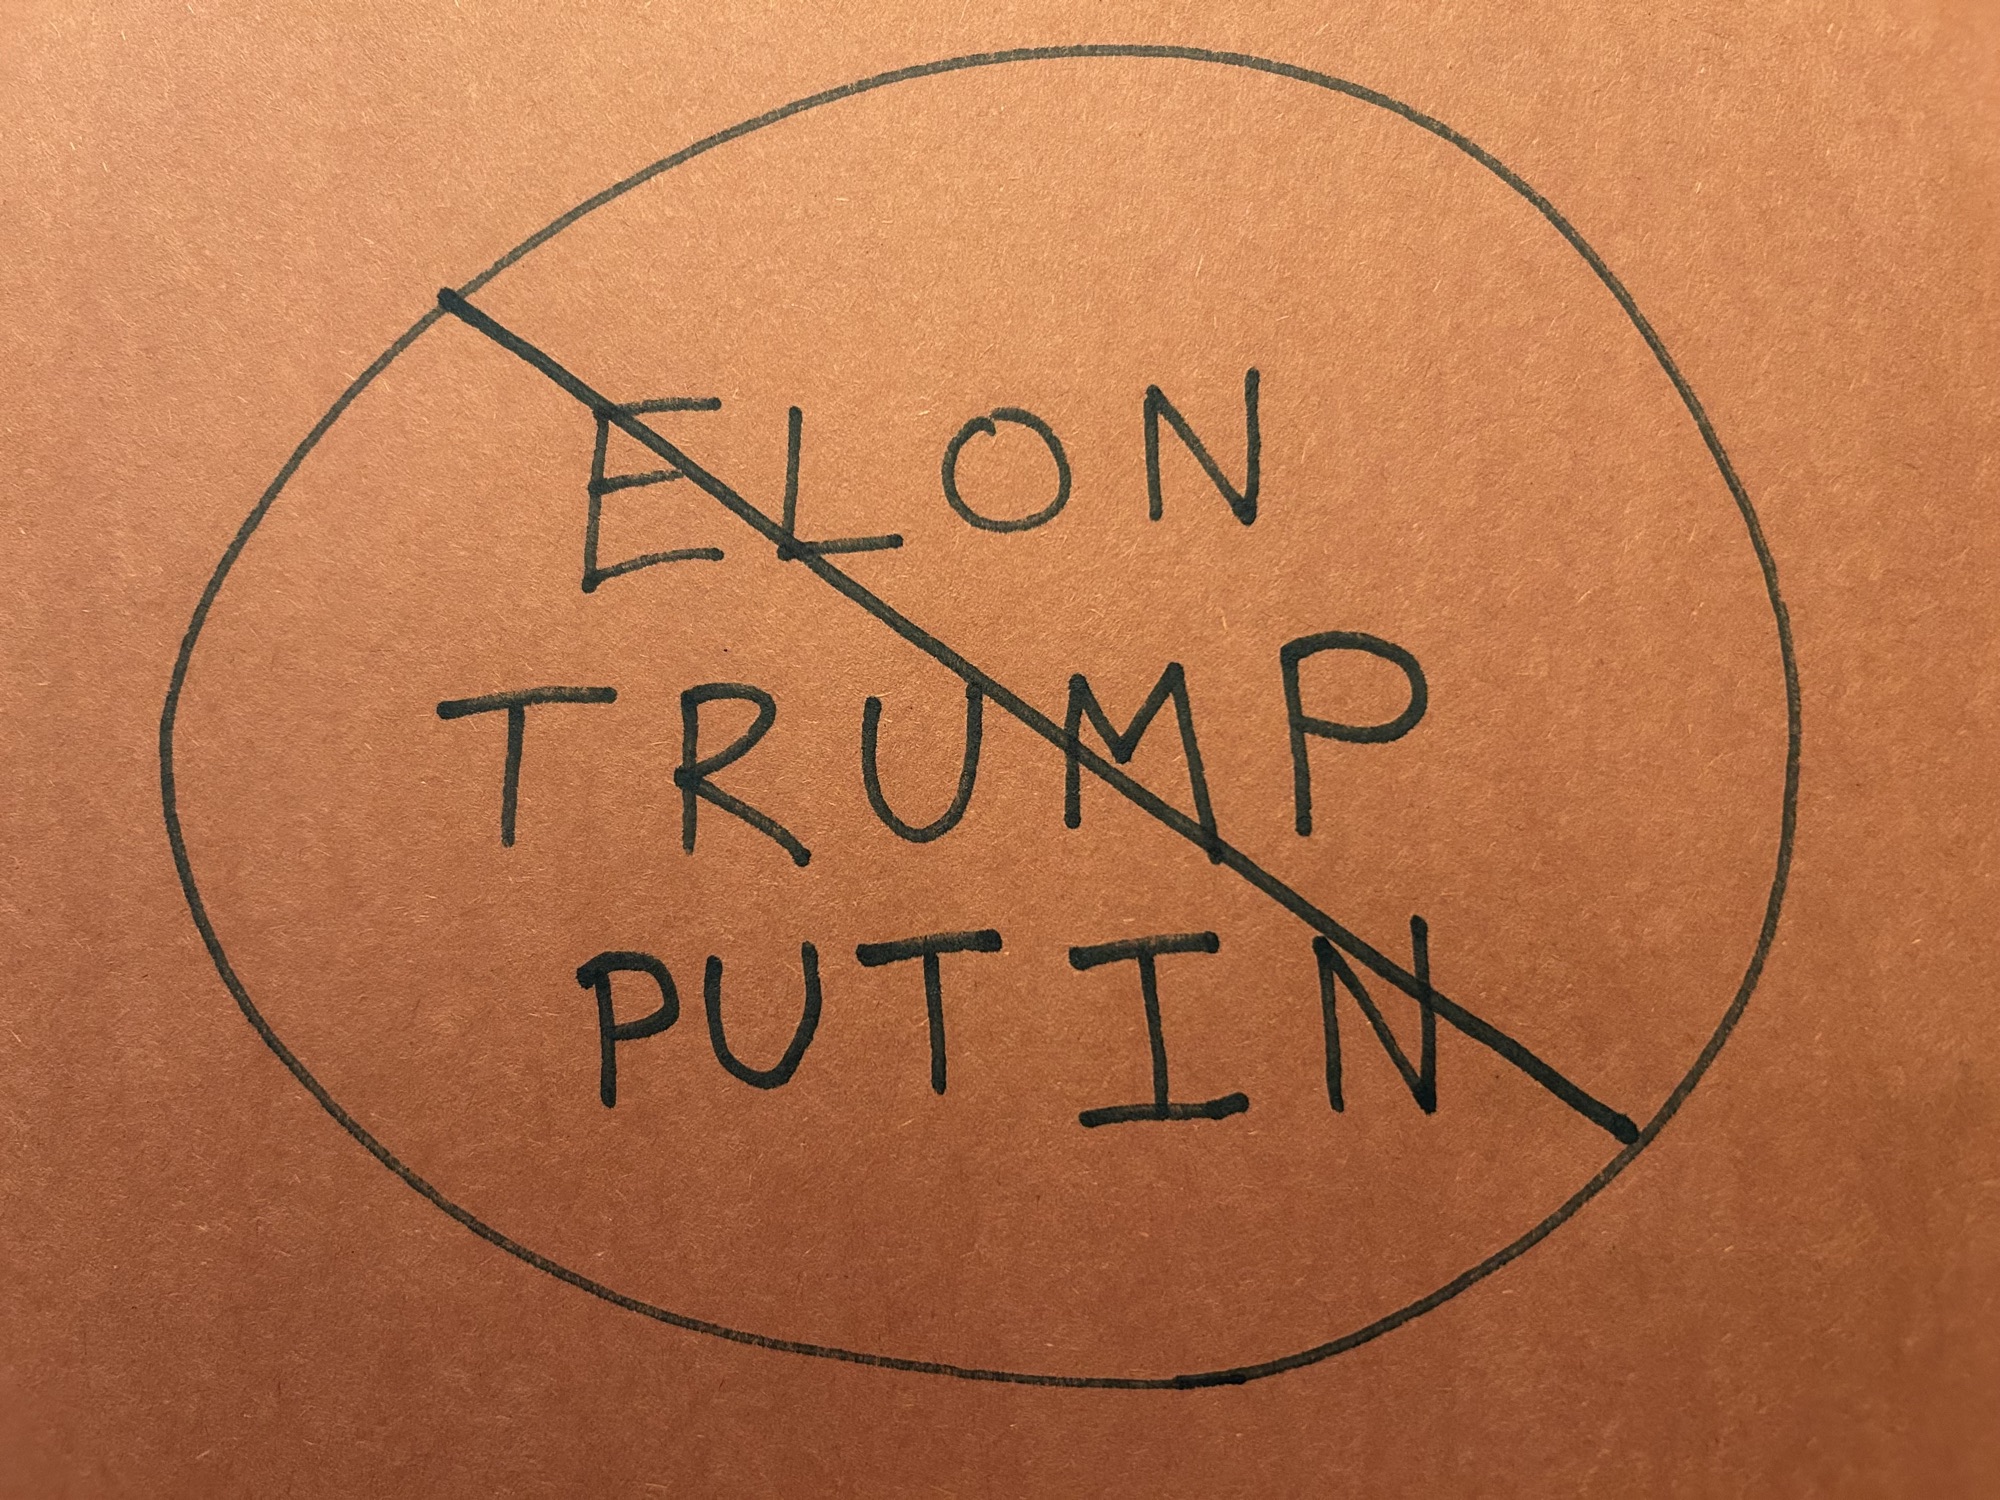 ELON
TRUMP
PUTIN